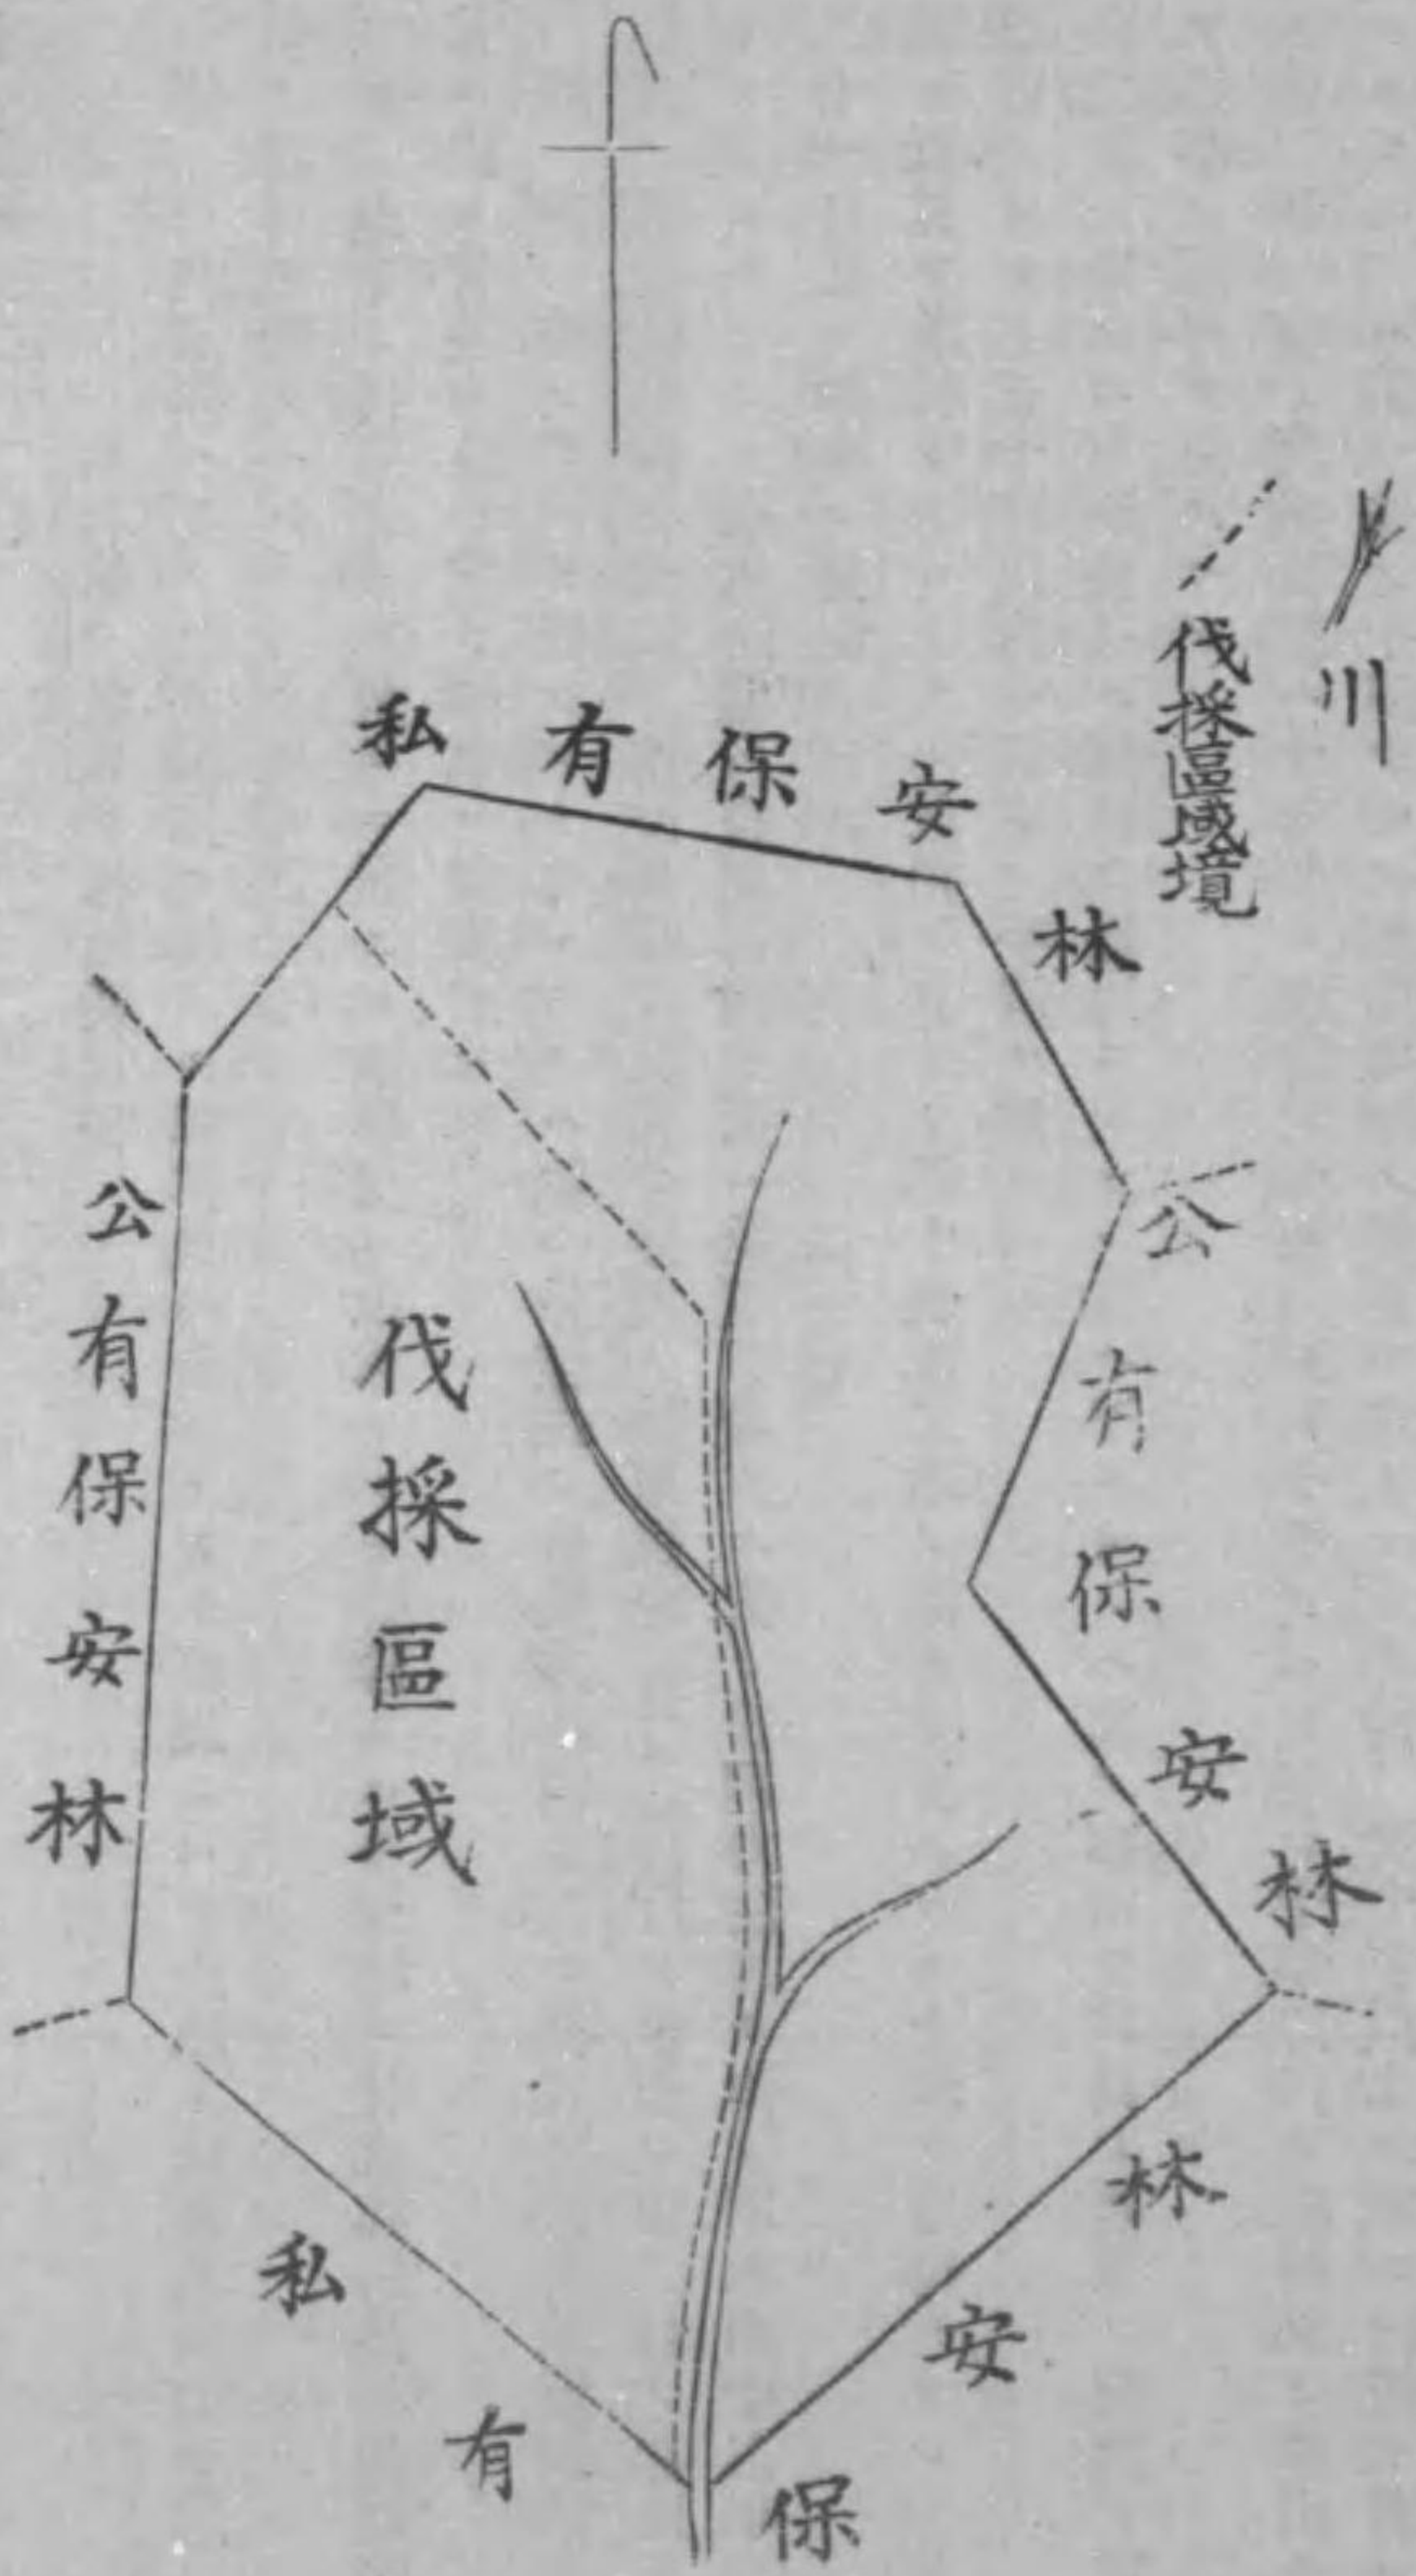 川
伐採區域境
私有保安林
公有保安林
伐採區域
公有保安林
私有保安林